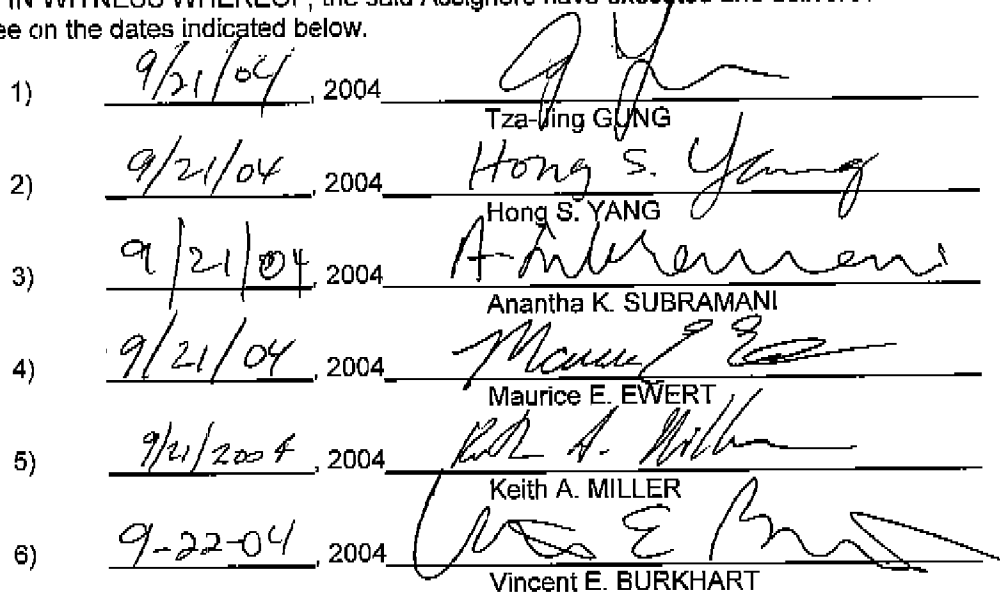 IN WITNESS WHEREOF, the said Assignors have executed and deliver
ee on the dates indicated below.
1) 9/21/04, 2004
Tza-Jing GUNG
2) 9/21/04, 2004 Hong S. Yang
Hong S. YANG
3) 9/21/04, 2004 A. Subramani
Anantha K. SUBRAMANI
4) 9/21/04, 2004 Maurice E E
Maurice E. EWERT
5) 9/21/2004, 2004 Keith A. Miller
Keith A. MILLER
6) 9-22-04, 2004
Vincent E. BURKHART